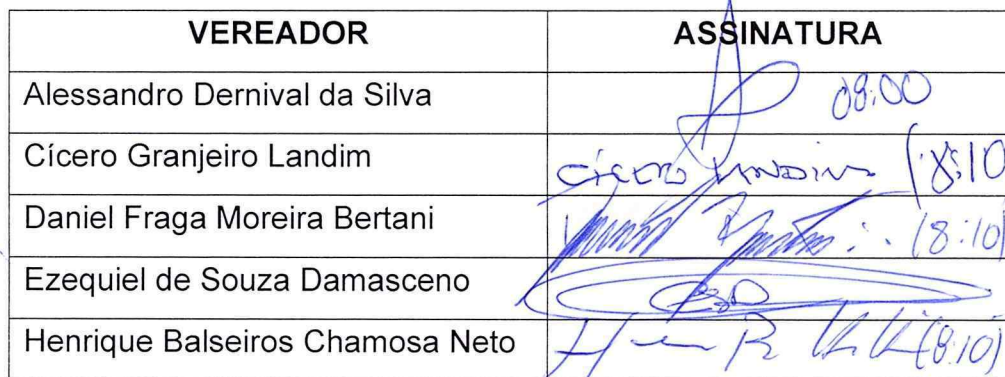 VEREADOR ASSINATURA
Alessandro Dernival da Silva 08:00
Cícero Granjeiro Landim Cícero Landim (8:10
Daniel Fraga Moreira Bertani (8:10)
Ezequiel de Souza Damasceno
Henrique Balseiros Chamosa Neto (8:10)